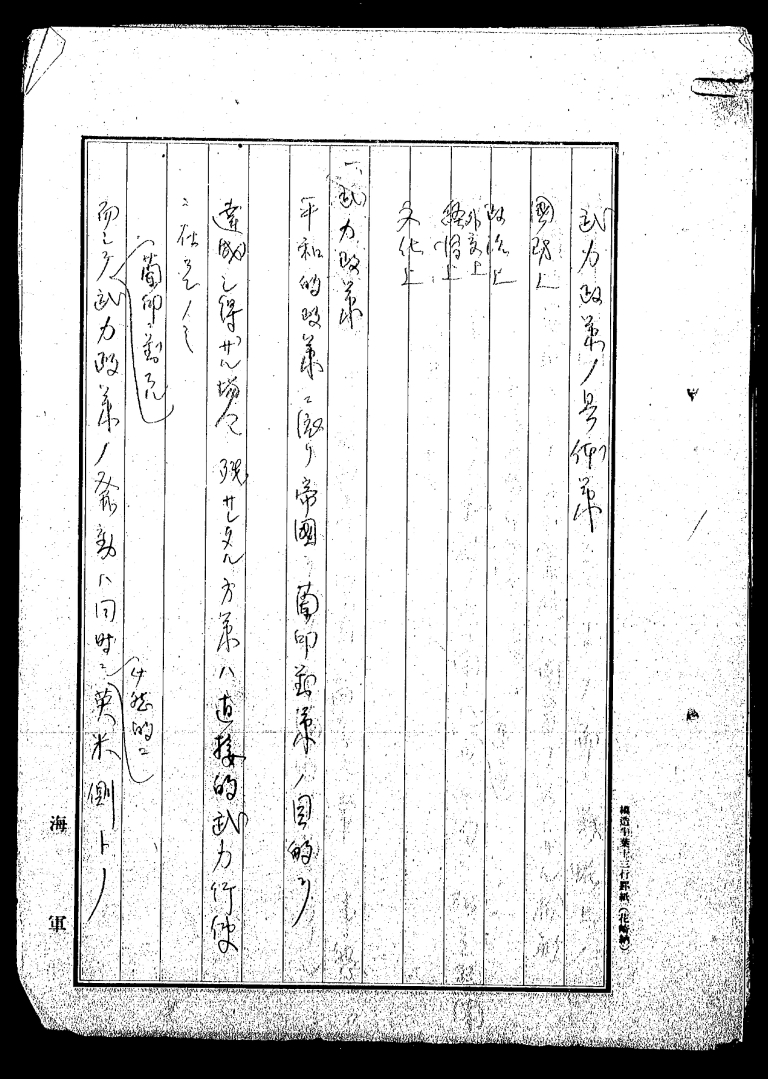 武力政策ノ具体策
國防上
政治上
外交上
經済上
文化上
一、武力政策
平和的政策ニ依リ帝國ノ蘭印對策ノ目的ヲ
達成シ得ザル場合 残サレタル方策ハ直接的武力行使
ニ在ルノミ
(蘭印ニ對スル)
而シテ武力政策ノ発動ハ同時ニ英米側トノ
必然的ニ
海軍